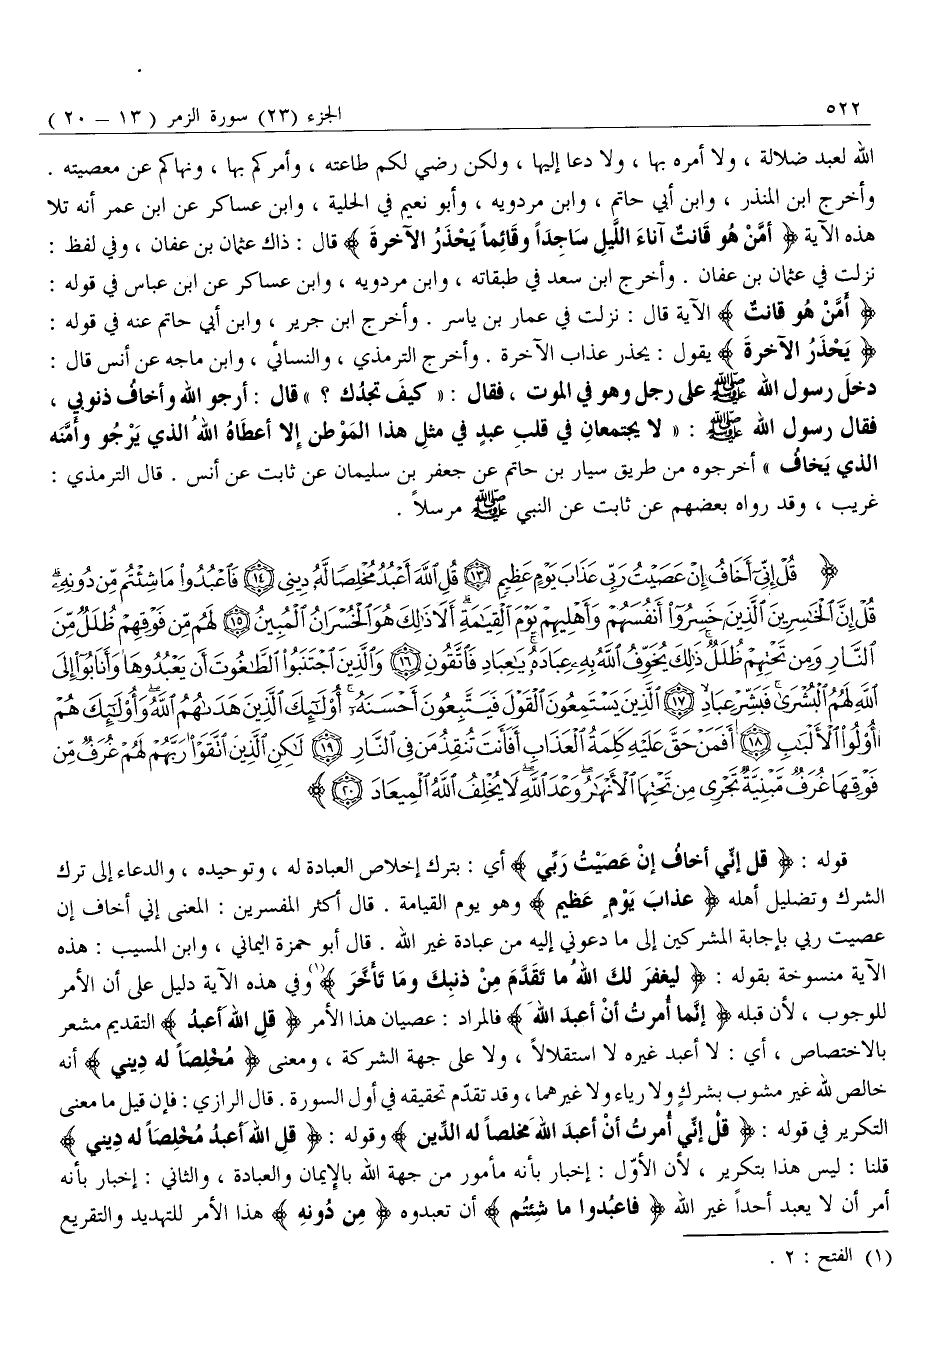 ٥٢٢
الجزء (٢٣) سورة الزمر ( ١٣ – ٢٠ )
الله لعبد ضلالة ، ولا أمره بها ، ولا دعا إليها ، ولكن رضي لكم طاعته ، وأمركم بها ، ونهاكم عن معصيته .
وأخرج ابن المنذر ، وابن أبي حاتم ، وابن مردويه ، وأبو نعيم في الحلية ، وابن عساكر عن ابن عمر أنه تلا
هذه الآية ﴿ أمَّنْ هُو قَانتٌ آناءَ اللَّيلِ سَاجِداً وقَائِماً يَحْذَرُ الآخرةَ ﴾ قال : ذاك عثمان بن عفان ، وفي لفظ :
نزلت في عثمان بن عفان . وأخرج ابن سعد في طبقاته ، وابن مردويه ، وابن عساكر عن ابن عباس في قوله :
﴿ أَمَّنْ هُو قانتٌ ﴾ الآية قال : نزلت في عمار بن ياسر . وأخرج ابن جرير ، وابن أبي حاتم عنه في قوله :
﴿ يَحْذَرُ الآخرةَ ﴾ يقول : يحذر عذاب الآخرة . وأخرج الترمذي ، والنسائي ، وابن ماجه عن أنس قال :
دخلَ رسول الله ﷺ على رجل وهو في الموت ، فقال : « كيفَ تجدُك ؟ » قال : أرجو الله وأخافُ ذنوبي ،
فقال رسول الله ﷺ : « لا يجتمعانِ في قلب عبدٍ في مثلِ هذا المَوْطن إلا أعطَاهُ اللهُ الذي يَرْجُو وأمَّنَه
الذي يَخافُ » أخرجوه من طريق سيار بن حاتم عن جعفر بن سليمان عن ثابت عن أنس . قال الترمذي :
غريب ، وقد رواه بعضهم عن ثابت عن النبي ﷺ مرسلاً .
﴿ قُلْ إِنِّىٓ أَخَافُ إِنْ عَصَيْتُ رَبِّى عَذَابَ يَوْمٍ عَظِيمٍ ١٣ قُلِ ٱللَّهَ أَعْبُدُ مُخْلِصًا لَّهُۥ دِينِى ١٤ فَٱعْبُدُوا۟ مَا شِئْتُم مِّن دُونِهِۦ ۗ
قُلْ إِنَّ ٱلْخَٰسِرِينَ ٱلَّذِينَ خَسِرُوٓا۟ أَنفُسَهُمْ وَأَهْلِيهِمْ يَوْمَ ٱلْقِيَٰمَةِ ۗ أَلَا ذَٰلِكَ هُوَ ٱلْخُسْرَانُ ٱلْمُبِينُ ١٥ لَهُم مِّن فَوْقِهِمْ ظُلَلٌ مِّنَ
ٱلنَّارِ وَمِن تَحْتِهِمْ ظُلَلٌ ۚ ذَٰلِكَ يُخَوِّفُ ٱللَّهُ بِهِۦ عِبَادَهُۥ ۚ يَٰعِبَادِ فَٱتَّقُونِ ١٦ وَٱلَّذِينَ ٱجْتَنَبُوا۟ ٱلطَّٰغُوتَ أَن يَعْبُدُوهَا وَأَنَابُوٓا۟ إِلَى
ٱللَّهِ لَهُمُ ٱلْبُشْرَىٰ ۚ فَبَشِّرْ عِبَادِ ١٧ ٱلَّذِينَ يَسْتَمِعُونَ ٱلْقَوْلَ فَيَتَّبِعُونَ أَحْسَنَهُۥٓ ۚ أُو۟لَٰٓئِكَ ٱلَّذِينَ هَدَىٰهُمُ ٱللَّهُ ۖ وَأُو۟لَٰٓئِكَ هُمْ
أُو۟لُوا۟ ٱلْأَلْبَٰبِ ١٨ أَفَمَنْ حَقَّ عَلَيْهِ كَلِمَةُ ٱلْعَذَابِ أَفَأَنتَ تُنقِذُ مَن فِى ٱلنَّارِ ١٩ لَٰكِنِ ٱلَّذِينَ ٱتَّقَوْا۟ رَبَّهُمْ لَهُمْ غُرَفٌ مِّن
فَوْقِهَا غُرَفٌ مَّبْنِيَّةٌ تَجْرِى مِن تَحْتِهَا ٱلْأَنْهَٰرُ ۖ وَعْدَ ٱللَّهِ ۖ لَا يُخْلِفُ ٱللَّهُ ٱلْمِيعَادَ ٢٠ ﴾
قوله : ﴿ قل إنّي أخافُ إنْ عَصَيْتُ رَبِّي ﴾ أي : بترك إخلاص العبادة له ، وتوحيده ، والدعاء إلى ترك
الشرك وتضليل أهله ﴿ عذابَ يَوْمٍ عَظيمٍ ﴾ وهو يوم القيامة . قال أكثر المفسرين : المعنى إني أخاف إن
عصيت ربي بإجابة المشركين إلى ما دعوني إليه من عبادة غير الله . قال أبو حمزة اليماني ، وابن المسيب : هذه
الآية منسوخة بقوله : ﴿ ليغفرَ لكَ اللهُ ما تَقَدَّمَ مِنْ ذنبِكَ ومَا تَأخَّرَ ﴾(١) وفي هذه الآية دليل على أن الأمر
للوجوب ، لأن قبله ﴿ إنَّما أُمرتُ أنْ أعبدَ اللهَ ﴾ فالمراد : عصيان هذا الأمر ﴿ قلِ اللهَ أعبدُ ﴾ التقديم مشعر
بالاختصاص ، أي : لا أعبد غيره لا استقلالاً ، ولا على جهة الشركة ، ومعنى ﴿ مُخْلِصاً له دِيني ﴾ أنه
خالص لله غير مشوب بشركٍ ولا رياء ولا غيرهما ، وقد تقدّم تحقيقه في أول السورة . قال الرازي : فإن قيل ما معنى
التكرير في قوله : ﴿ قلْ إنّي أُمرتُ أنْ أعبدَ اللهَ مخلصاً له الدِّين ﴾ وقوله : ﴿ قلِ اللهَ أعبدُ مُخْلِصَاً له دِيني ﴾
قلنا : ليس هذا بتكرير ، لأن الأوّل : إخبار بأنه مأمور من جهة الله بالإيمان والعبادة ، والثاني : إخبار بأنه
أمر أن لا يعبد أحداً غير الله ﴿ فاعبُدوا ما شِئتُم ﴾ أن تعبدوه ﴿ مِن دُونهِ ﴾ هذا الأمر للتهديد والتقريع
(١) الفتح : ٢ .